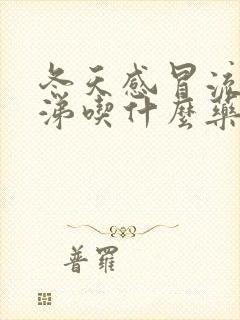 冬天感冒流
涕喫什麼藥
普羅